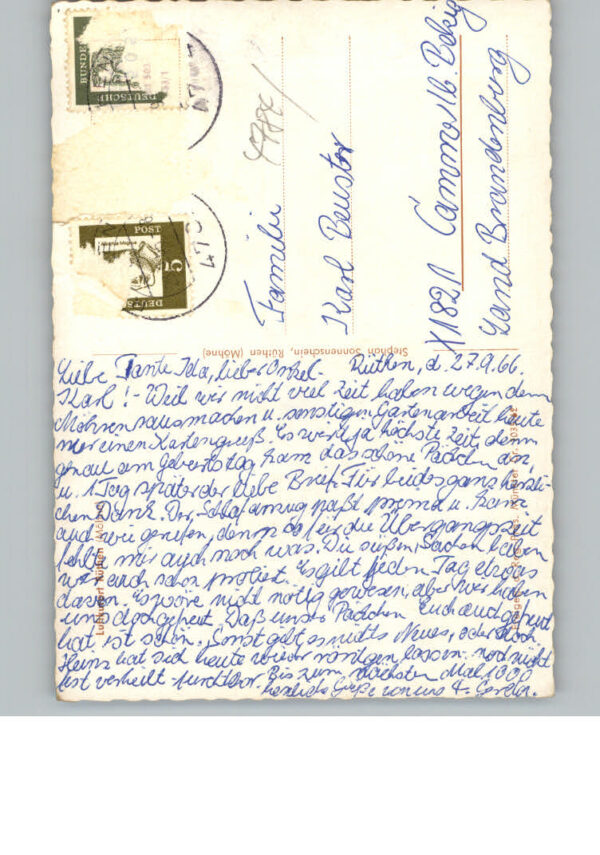 BUNDE
DEUTSCHE
POST
5
DEUTS
Familie
Karl Beuster
X1821 Cammer lb. Belzig
Land Brandenburg
Stephan Sonnenschein, Rüthen (Möhne)
Liebe Tante Ida, lieber Onkel Rüthen, d. 27.9.66.
Karl! - Weil wir nicht viel Zeit haben wegen dem
Möhren rausmachen u. sonstigen Gartenarbeit heute
nur einen Kartengruß. Es wird ja höchste Zeit, denn
genau am Geburtstag kam das schöne Päckchen an,
u. 1 Tag später der liebe Brief. Für beides ganz herzli-
chen Dank. Der Schlafanzug paßt prima u. kam
auch wie gerufen, denn so für die Übergangszeit
fehlte mir auch noch was. Die süßen Sachen haben
wir auch schon probiert. Es gibt jeden Tag etwas
davon. Es wäre nicht nötig gewesen, aber wir haben
uns doch gefreut. Daß unser Päckchen Euch auch gefreut
hat ist schön. Sonst gibt es nichts Neues, oder doch
Heinz hat sich heute wieder röntgen lassen. noch nicht
fest verheilt - furchtbar Bis zum nächsten Mal 1000
herzliche Grüße von uns 4. Gerda.
Luftkurort Rüthen (Möhne)